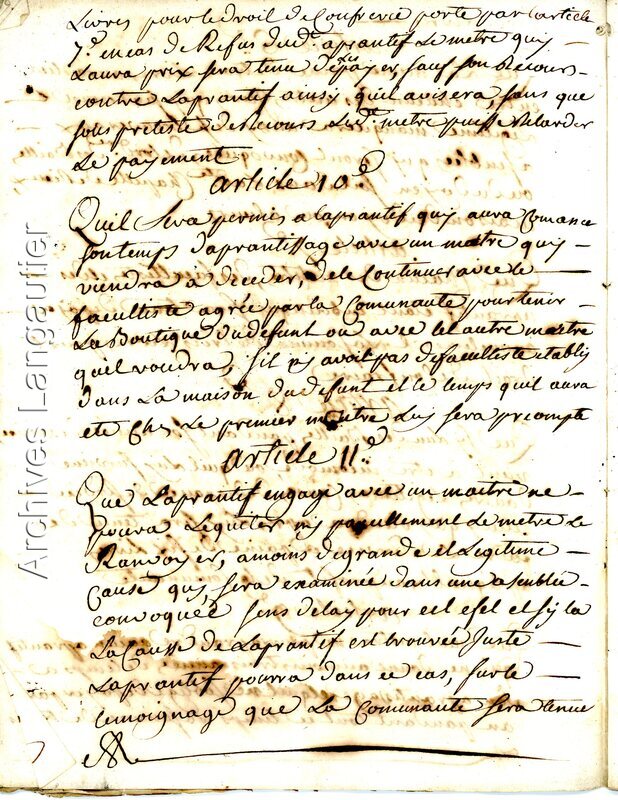 Livres pour le droit de Confrerie porte par l'article
7.e en cas de Refus dud.t aprantif Le metre quy
L'aura prix sera tenu de payer, sauf son Recours
contre L'aprantif ainsy quil avisera, sans que
sous preteste de Recours Led.t metre puisse Retarder
Le payement
article 10.e
Quil Sera permis a laprantif quy aura Comance
son temps d'aprantissage avec un maitre quy
viendra a deceder, de le Continuer avec le
facultiste agrée par la Comunaute pour tenir
La Boutique du defunt ou avec tel autre maitre
quil voudra, s'il ny avoit pas de facultiste etably
dans La maison du defunt et le temps quil aura
ete Chez Le premier maitre Luy sera precompte
article 11.e
Que L'aprantif engage avec un maitre ne
poura Le quiter ny pareillement Le metre Le
Ranvoyer, a moins de grande et Legitime
Cause quy sera examinée dans une asemblée
convoquée sens delay pour cet efet et sy la
La Causse de L'aprantif est trouvée Juste
L'aprantif pourra dans ce cas, sur le
temoignage que La Comunaute sera tenue
Archives Langautier